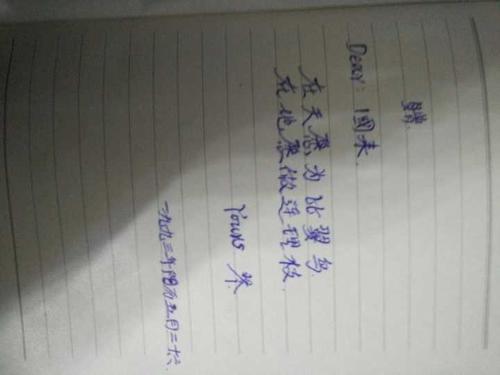 Dear: 国来.
在天愿为比翼鸟
在地愿做连理枝.
Yours
一九九三年 五月二十六.